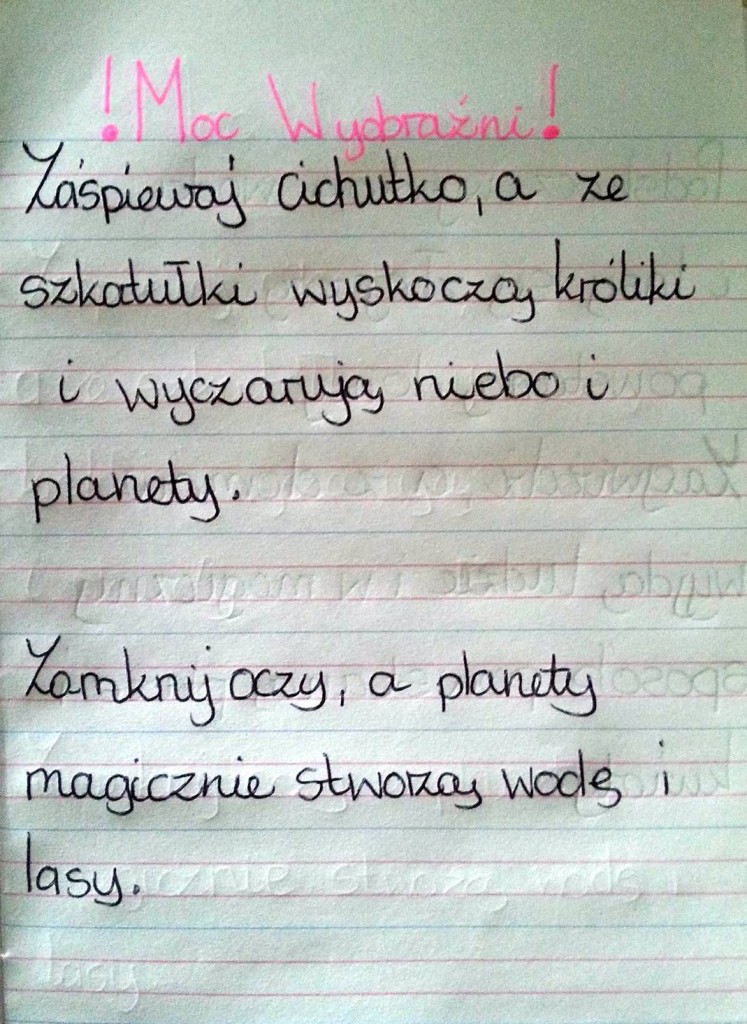 !Moc Wyobraźni!
Zaśpiewaj cichutko, a ze
szkatułki wyskoczą króliki
i wyczarują niebo i
planety.
Zamknij oczy, a planety
magicznie stworzą wodę i
lasy.